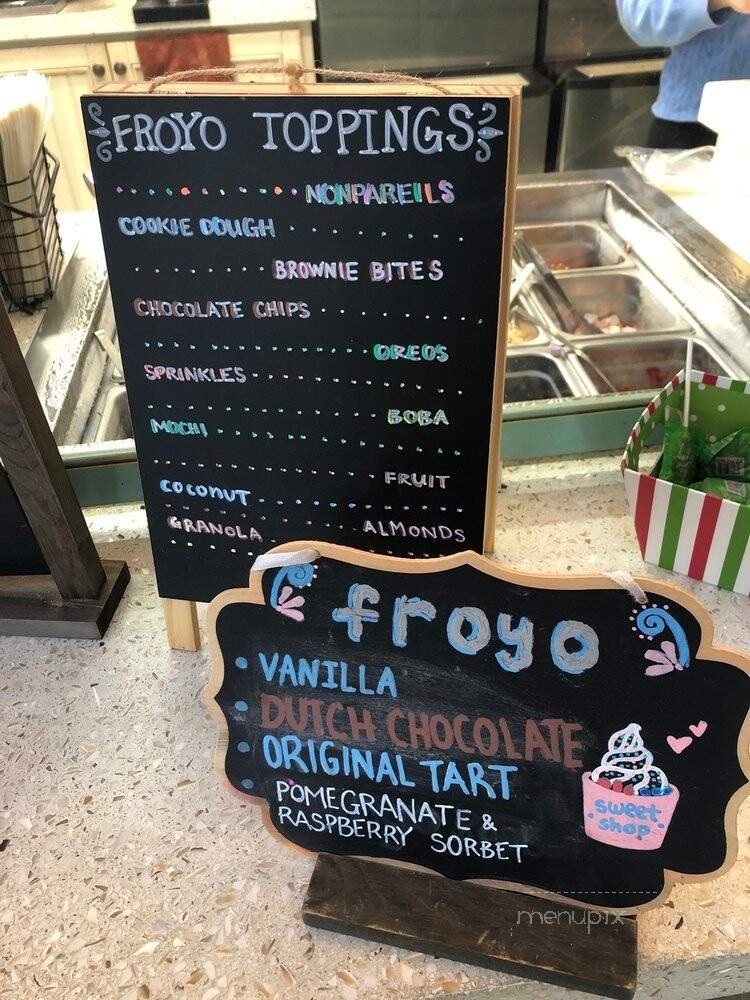 FROYO TOPPINGS
NONPAREILS
COOKIE DOUGH
BROWNIE BITES
CHOCOLATE CHIPS
OREOS
SPRINKLES
BOBA
MOCHI
FRUIT
COCONUT
GRANOLA
ALMONDS
froyo
• VANILLA
• DUTCH CHOCOLATE
• ORIGINAL TART
• POMEGRANATE &
RASPBERRY SORBET
sweet
shop
menupix